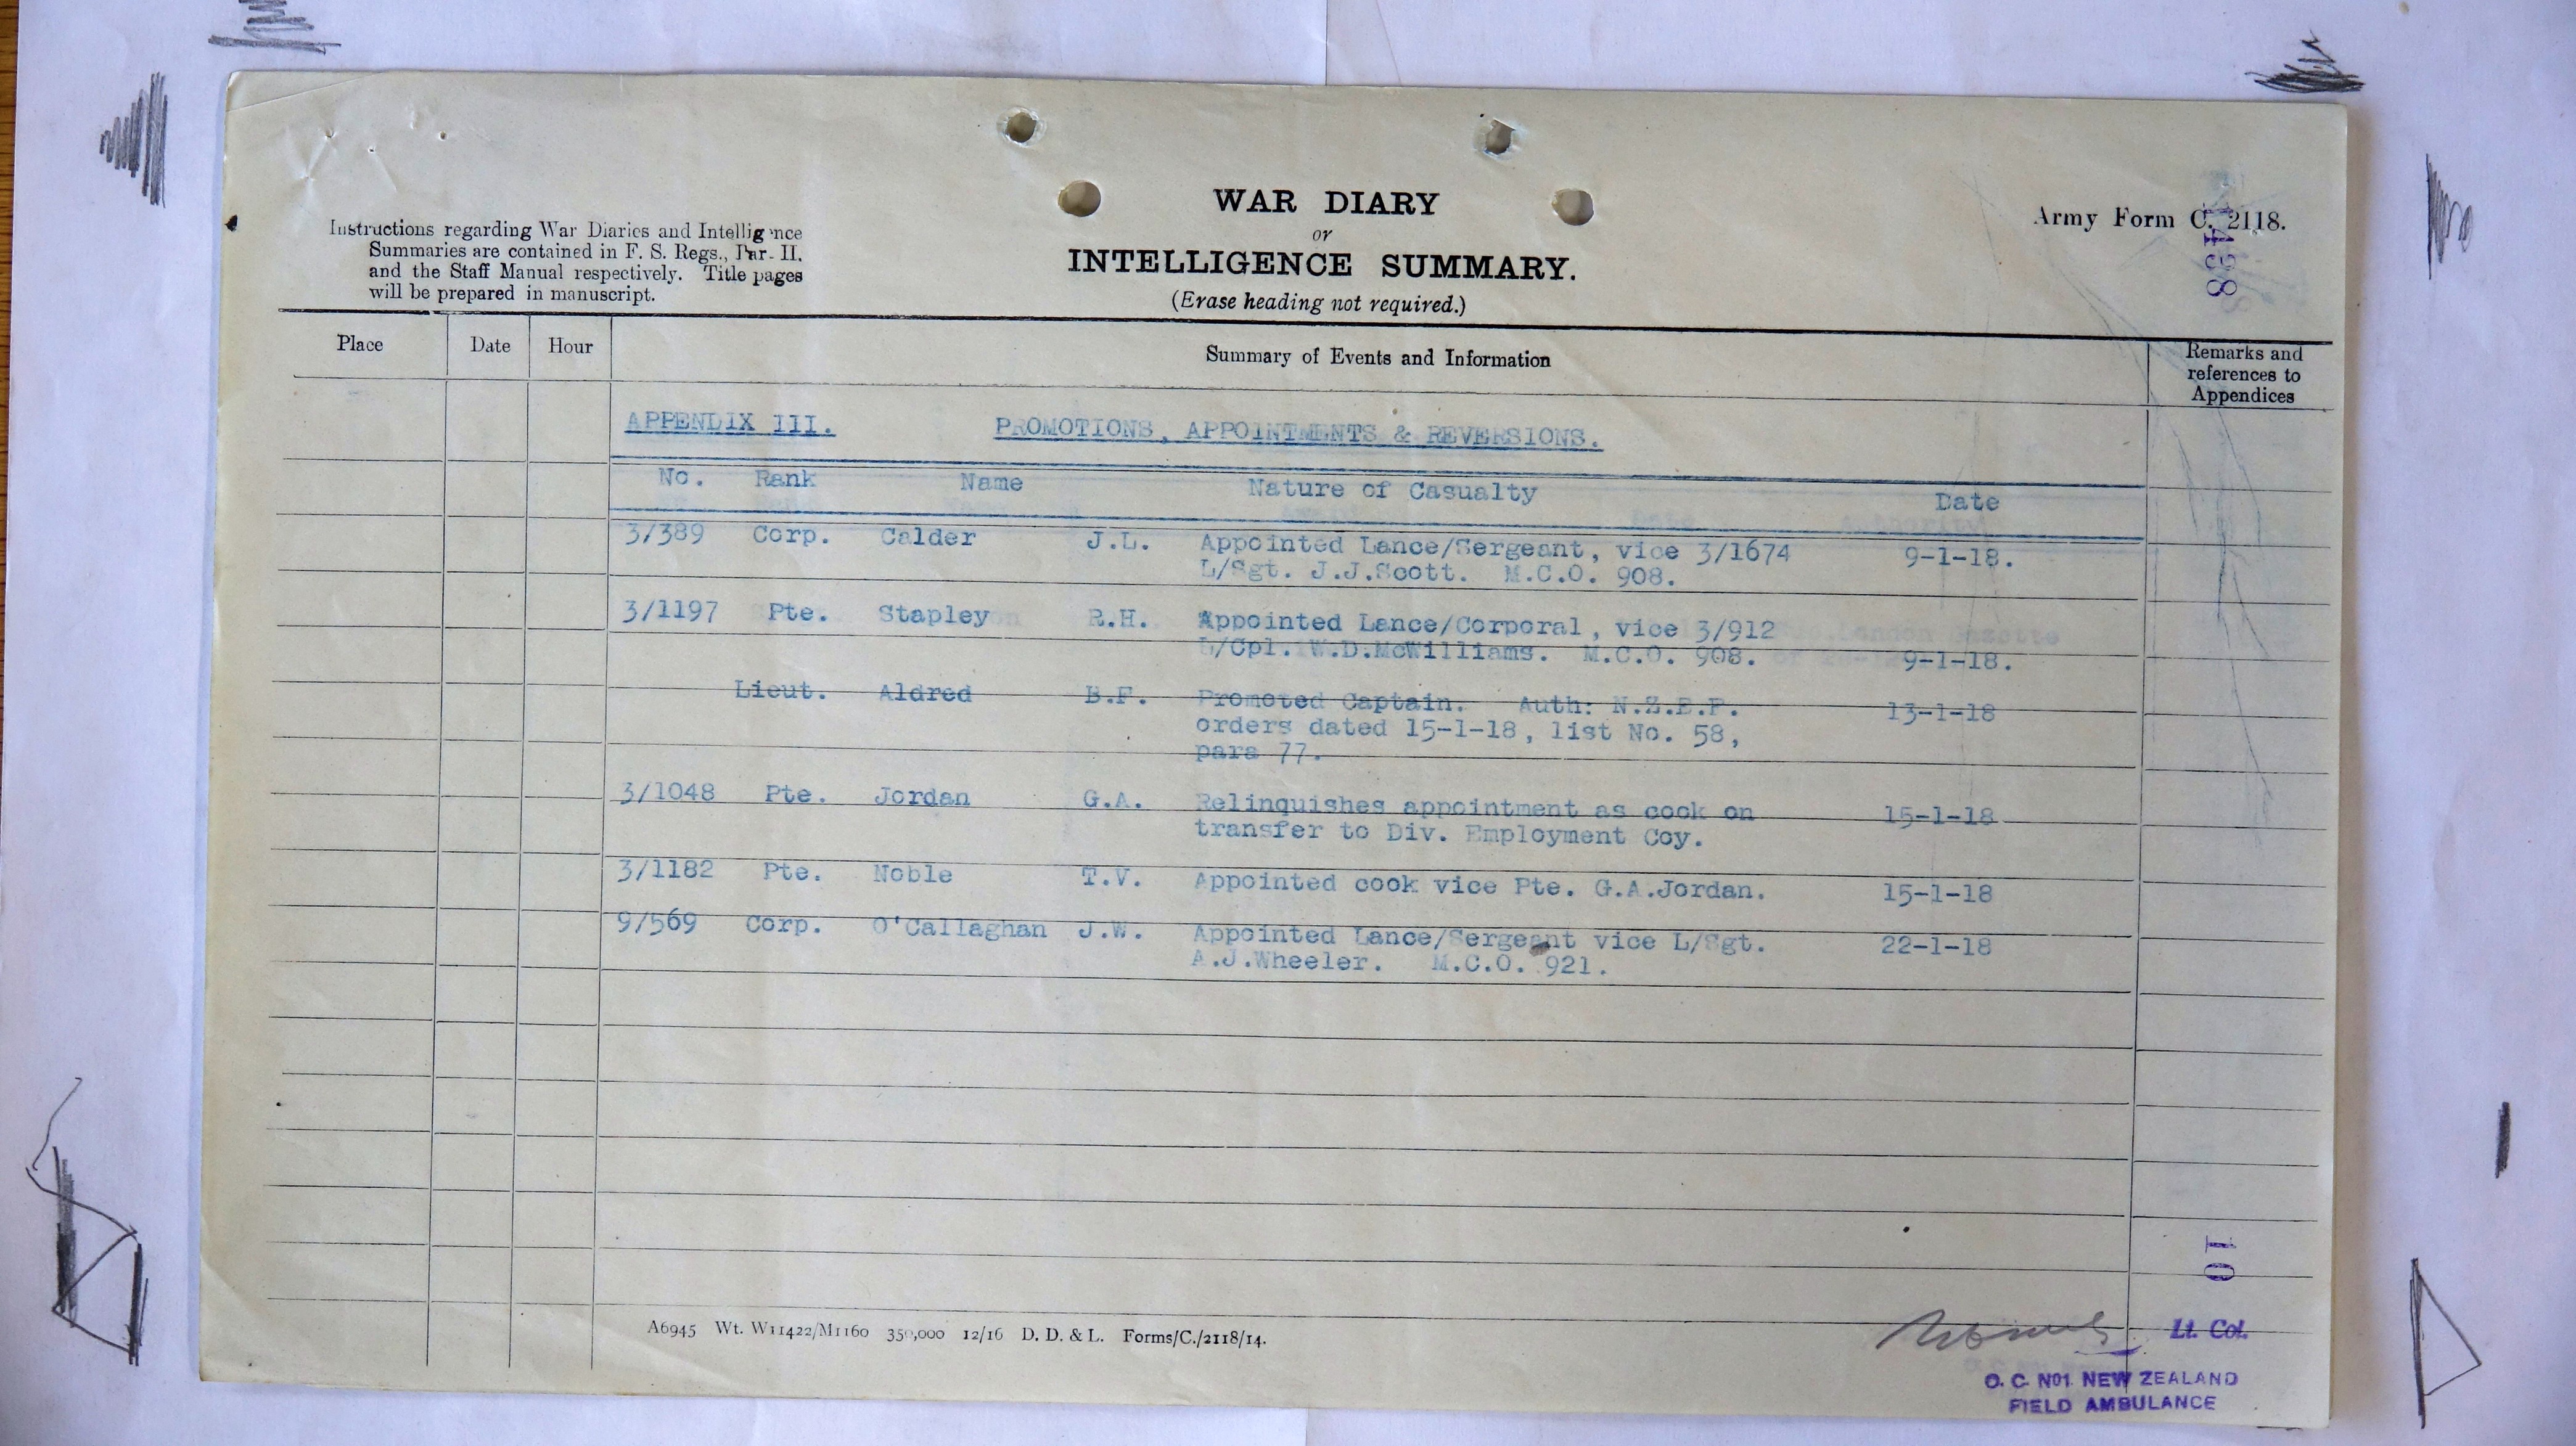 WAR DIARY
or
INTELLIGENCE SUMMARY.
(Erase heading not required.)
Instructions regarding War Diaries and Intelligence
Summaries are contained in F. S. Regs., Par. II.
and the Staff Manual respectively. Title pages
will be prepared in manuscript.
Army Form C. 2118.
Place Date Hour Summary of Events and Information Remarks and
references to
Appendices
APPENDIX III. PROMOTIONS, APPOINTMENTS & REVERSIONS.
No. Rank Name Nature of Casualty Date
3/389 Corp. Calder J.L. Appointed Lance/Sergeant, vice 3/1674 9-1-18.
L/Sgt. J.J.Scott. M.C.O. 908.
3/1197 Pte. Stapley R.H. Appointed Lance/Corporal, vice 3/912
L/Cpl. W.D.McWilliams. M.C.O. 908. 9-1-18.
Lieut. Aldred B.F. Promoted Captain. Auth: N.Z.E.F. 13-1-18
orders dated 15-1-18, list No. 58,
para 77.
3/1048 Pte. Jordan G.A. Relinquishes appointment as cook on 15-1-18
transfer to Div. Employment Coy.
3/1182 Pte. Noble T.V. Appointed cook vice Pte. G.A.Jordan. 15-1-18
9/569 Corp. O'Callaghan J.W. Appointed Lance/Sergeant vice L/Sgt. 22-1-18
A.J.Wheeler. M.C.O. 921.
10
A6945 Wt. W11422/M1160 350,000 12/16 D. D. & L. Forms/C./2118/14.
Lt. Col.
O. C. No1. NEW ZEALAND
FIELD AMBULANCE